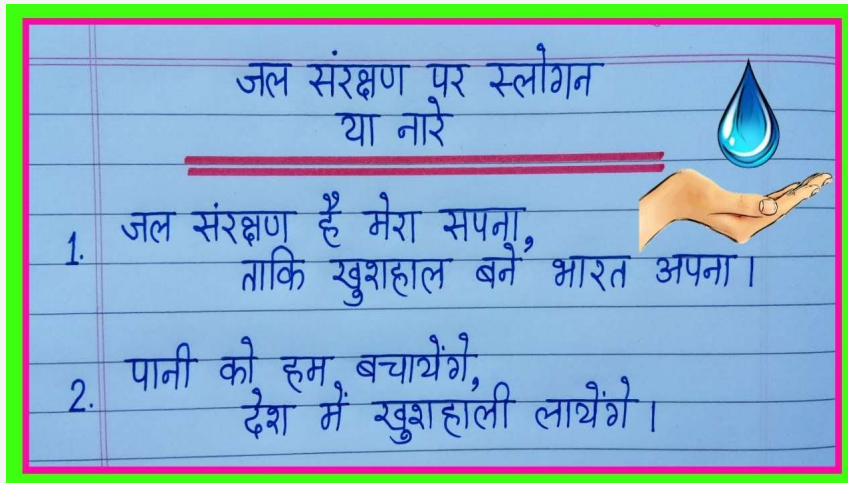 जल संरक्षण पर स्लोगन
या नारे
1. जल संरक्षण है मेरा सपना,
ताकि खुशहाल बने भारत अपना।
2. पानी को हम बचायेंगे,
देश में खुशहाली लायेंगे।